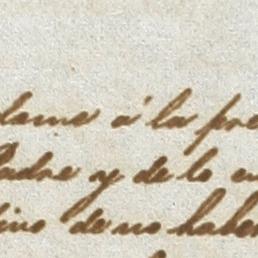 lame á la pre
Padre y de lo en
tivo de no haber